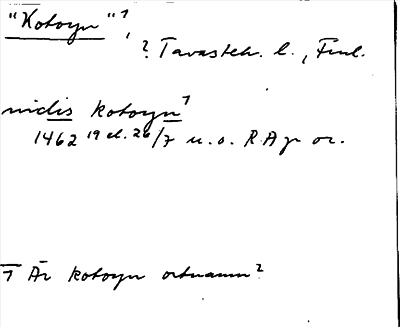 "Kotoyn" 1,
? Tavasteh. l., Finl.
nidis kotoyn 1
1462 19 el. 26/7 u.o. RAp or.
1 Är kotoyn ortnamn?